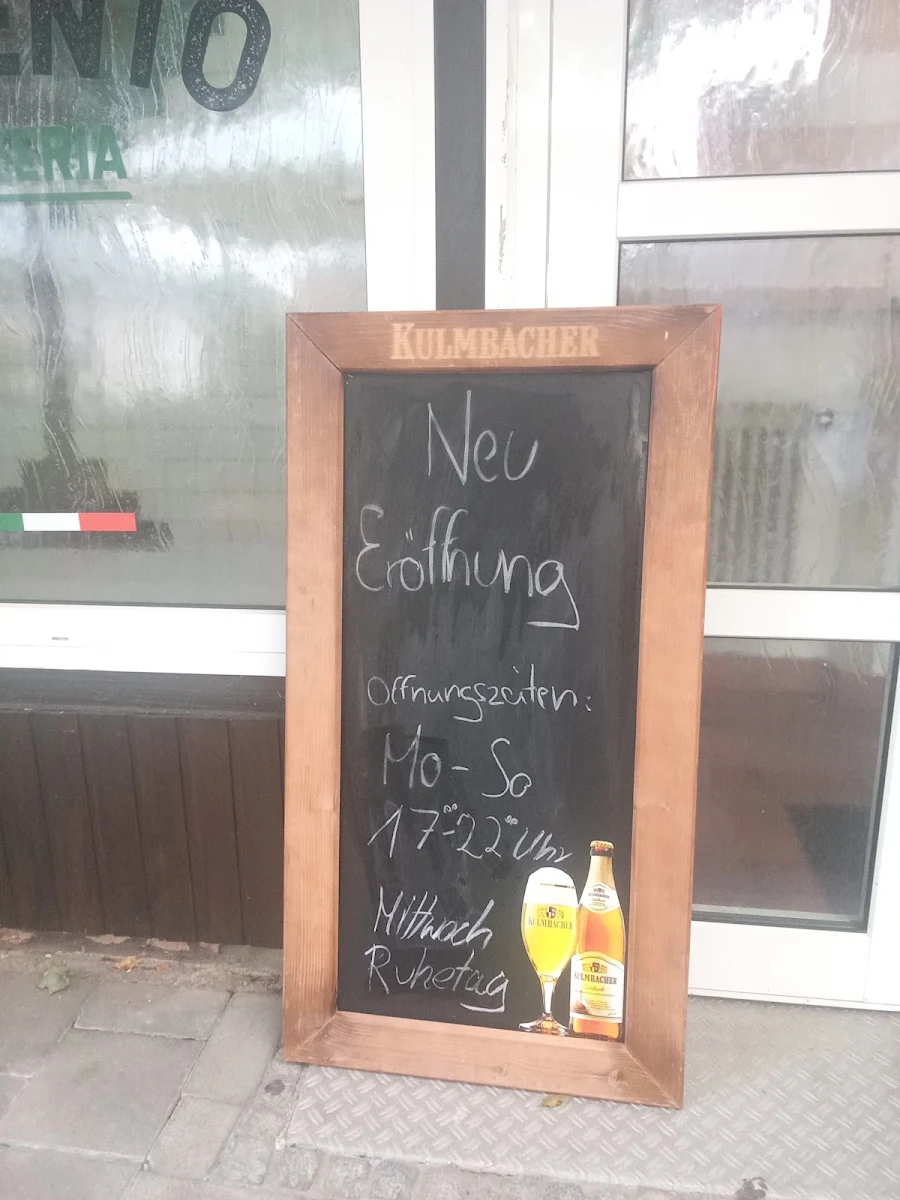 ENTO
ERIA
KULMBACHER
Neu
Eröffnung
Öffnungszeiten:
Mo - So
17⁰⁰-22⁰⁰ Uhr
Mittwoch
Ruhetag
KULMBACHER
KULMBACHER